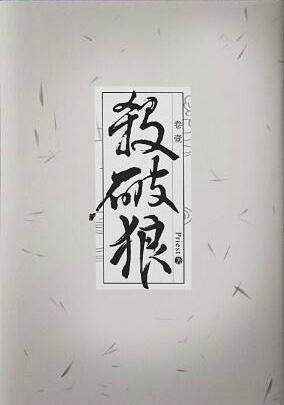 殺破狼
卷壹
Priest 著